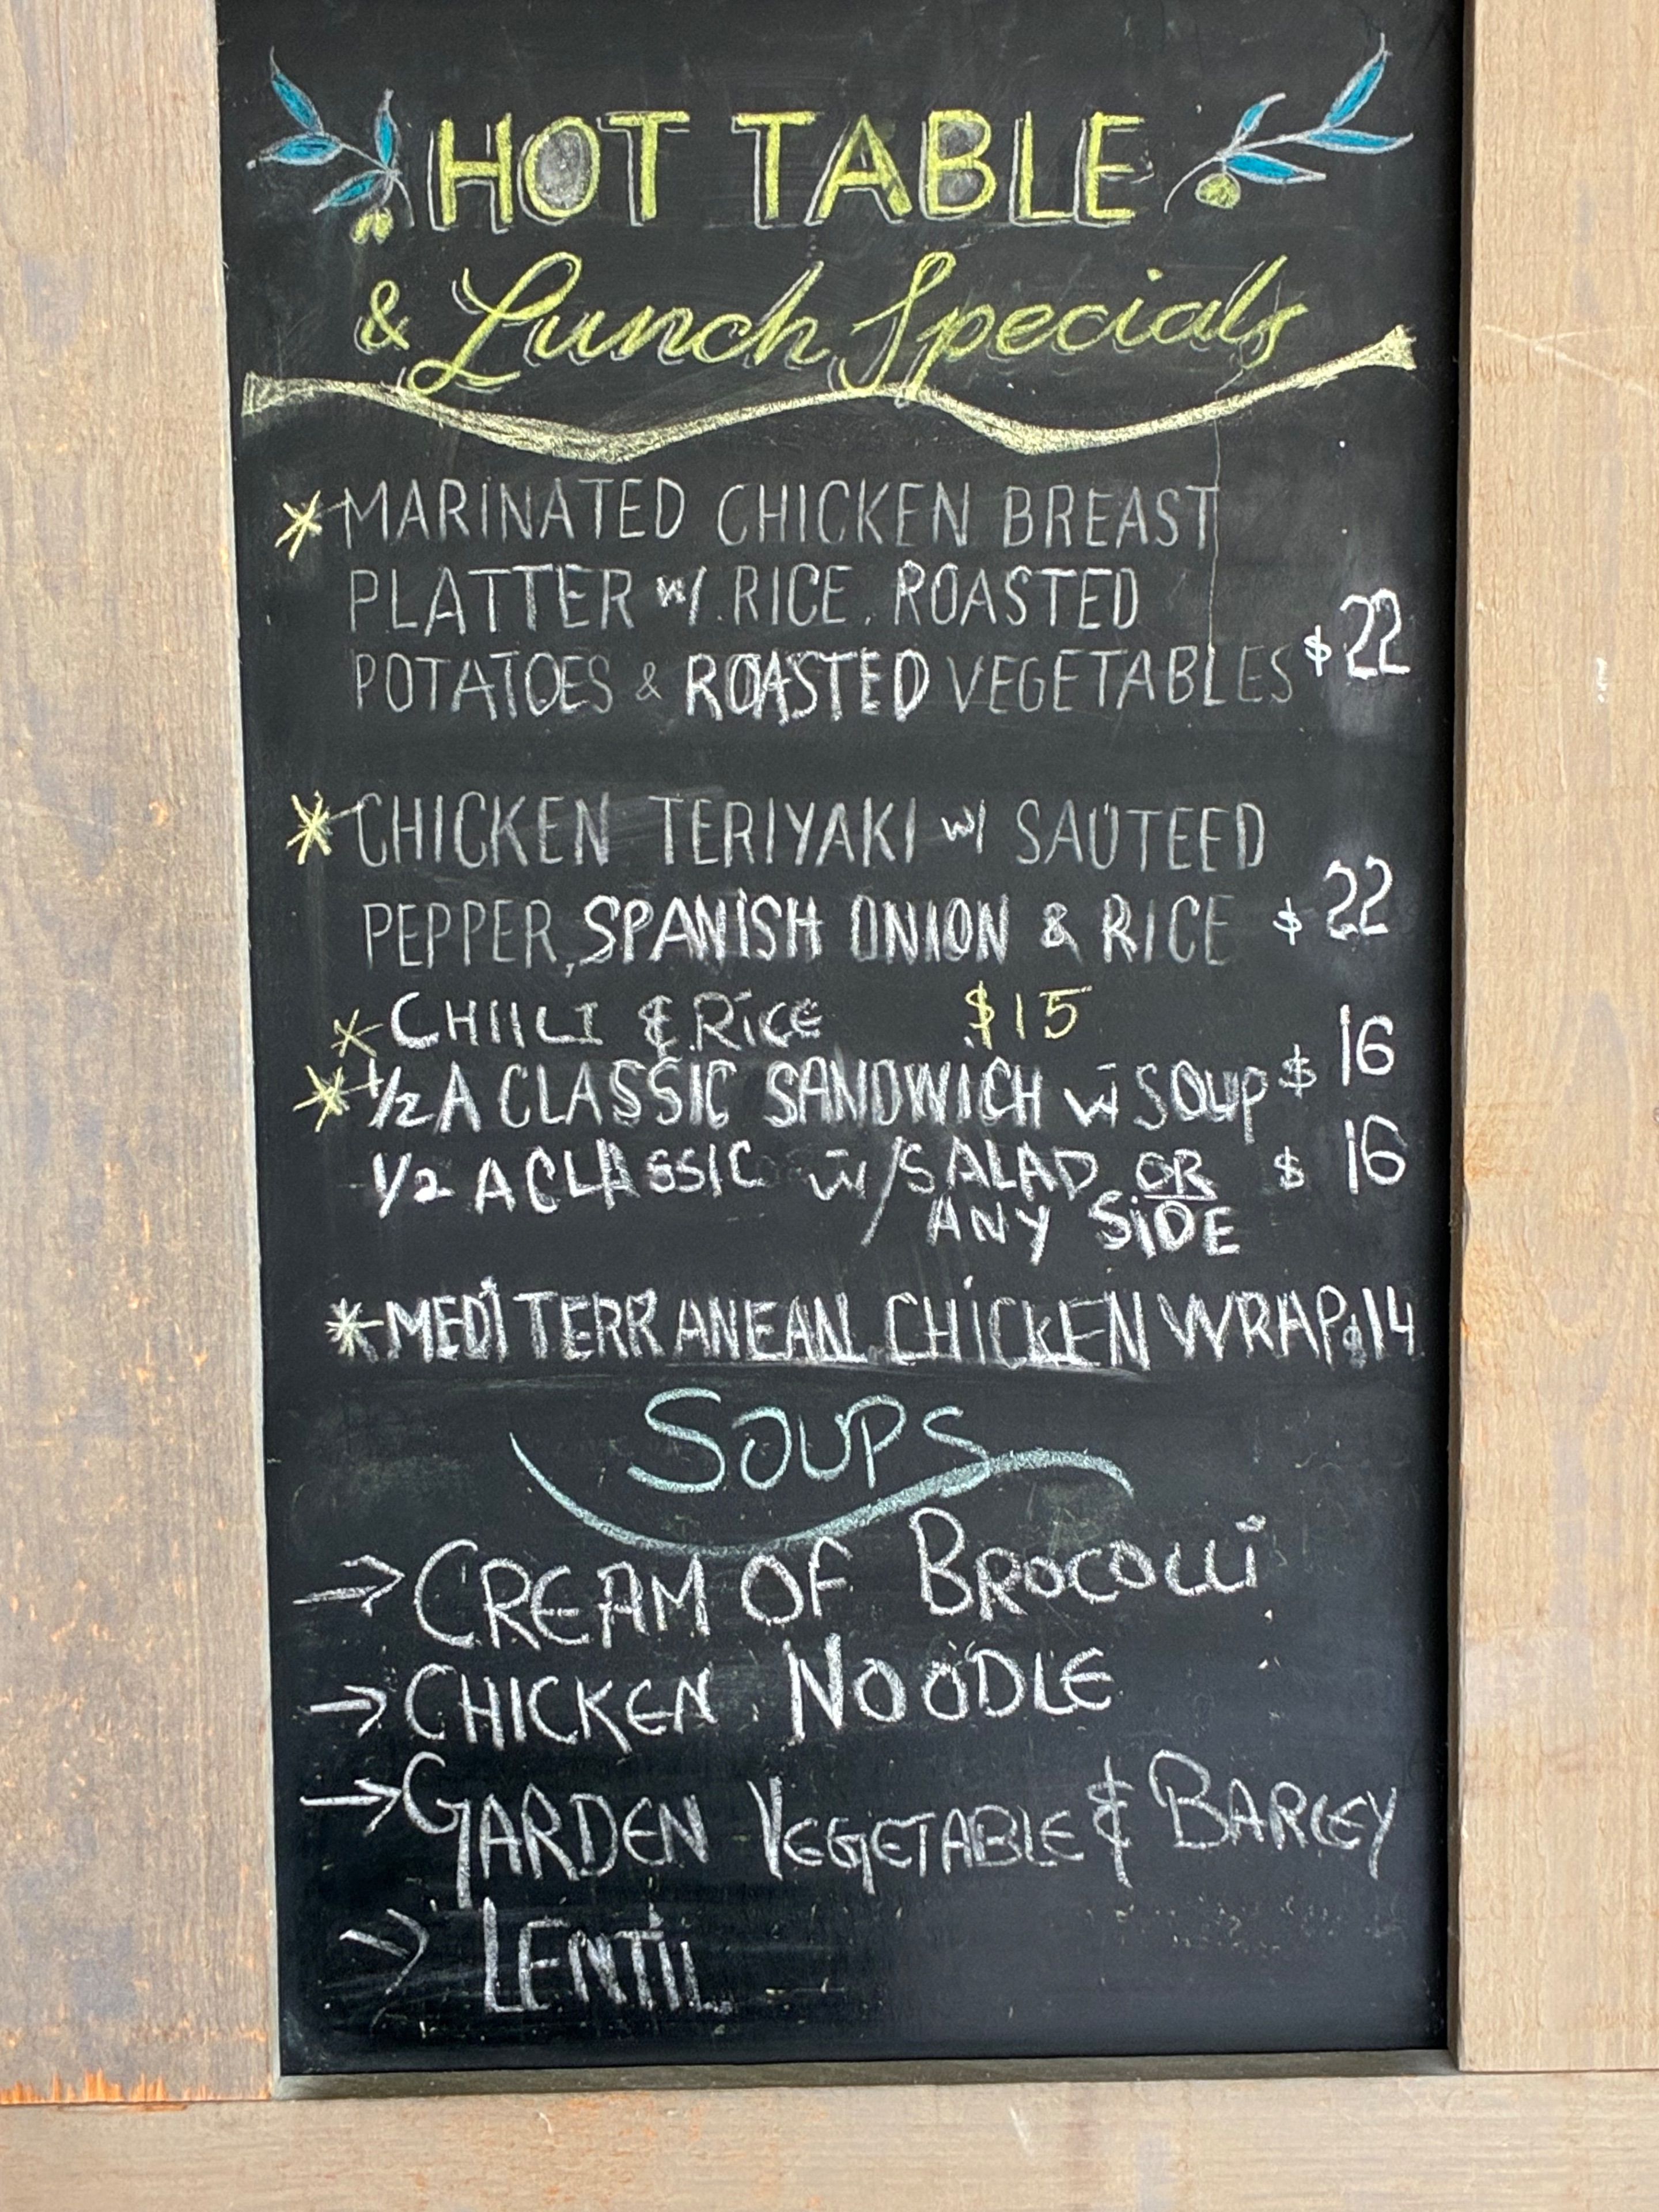 HOT TABLE
& Lunch Specials
* MARINATED CHICKEN BREAST
PLATTER w/. RICE, ROASTED
POTATOES & ROASTED VEGETABLES $22
* CHICKEN TERIYAKI w/ SAUTEED
PEPPER, SPANISH ONION & RICE $ 22
* CHIILI & RICE $15
* 1/2 A CLASSIC SANDWICH w SOUP $ 16
1/2 A CLASSIC w/ SALAD OR $ 16
ANY SIDE
* MEDITERRANEAN CHICKEN WRAP $14
SOUPS
→ CREAM OF BROCOLLI
→ CHICKEN NOODLE
→ GARDEN VEGGETABLE & BARLEY
→ LENTIL